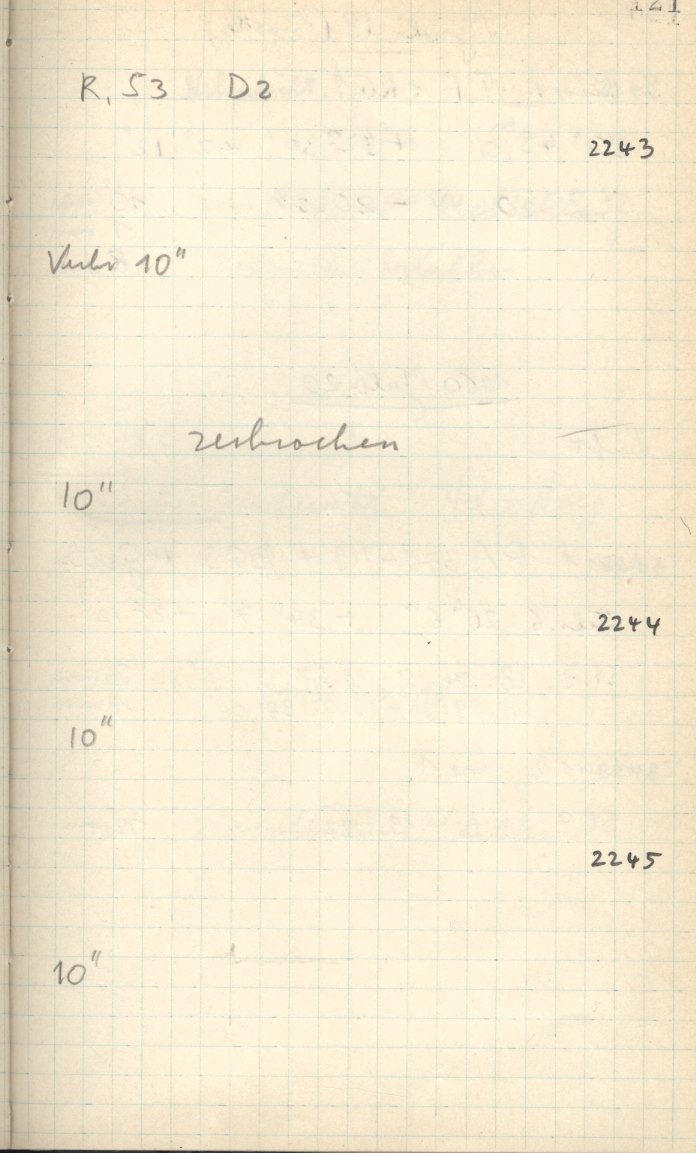 121
R, 53 D2
2243
10"
zerbrochen
10"
2244
10"
2245
10"